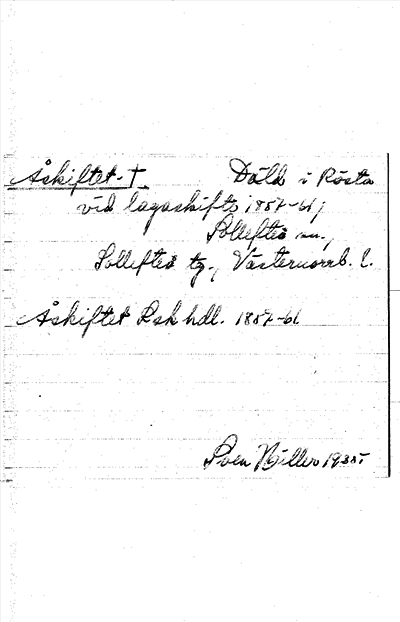 Åskiftet. † Dåld i Rösta
vid lagaskifte 1857-61,
Sollefteå sn.,
Sollefteå tg., Västernorrb. l.
Åskiftet Lsk hdl. 1857-61
Sven 1935